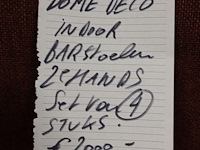 DOME DECO
INDOOR
BARstoelen
2eHANDS
Set van 4
STUKS.
€ 2000,-